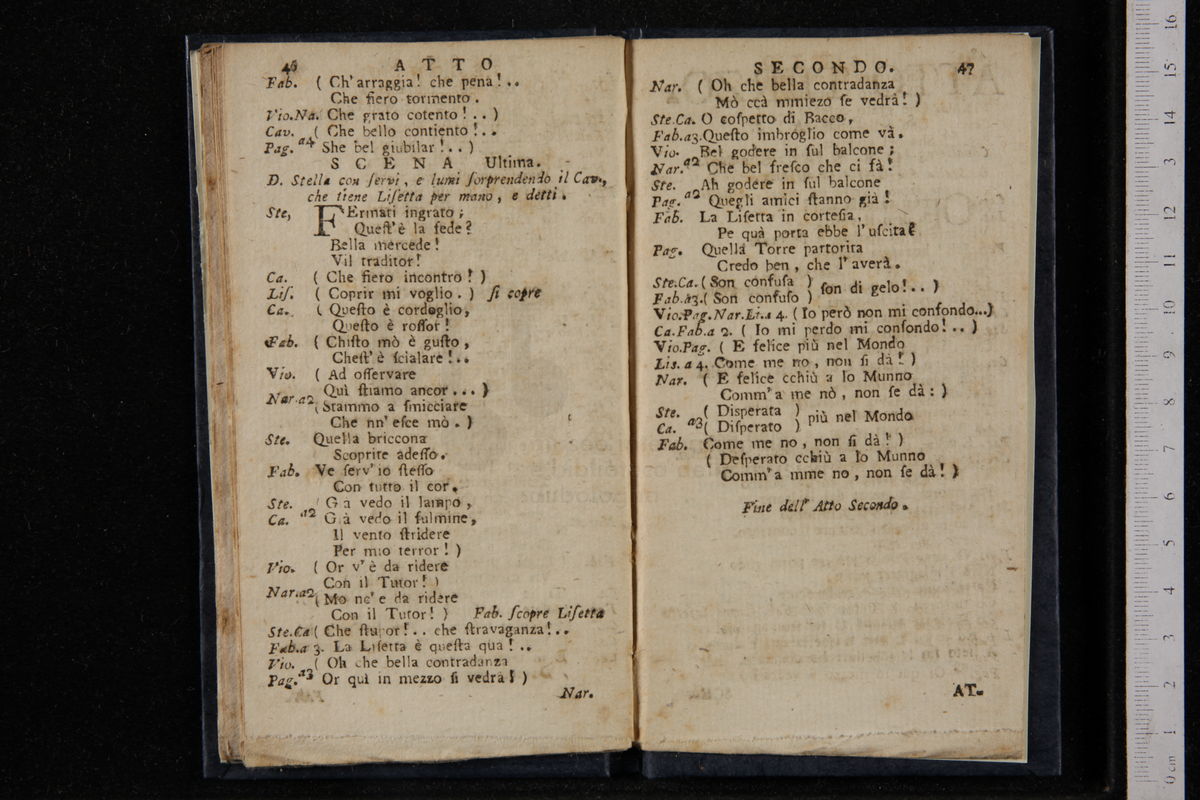 46 ATTO
Fab. ( Ch' arraggia! che pena!..
Che fiero tormento.
Vio.Na. Che grato cotento!..)
Cav. ( Che bello contiento!..
Pag. a4 She bel giubilar!..)
SCENA Ultima.
D. Stella con ſervi, e lumi ſorprendendo il Cav.,
che tiene Liſetta per mano, e detti.
Ste, FErmati ingrato;
Queſt' è la fede?
Bella mercede!
Vil traditor!
Ca. ( Che fiero incontro! )
Liſ. ( Coprir mi voglio. ) ſi copre
Ca. ( Queſto è cordoglio,
Queſto è roſſor!
Fab. ( Chiſto mò è guſto,
Cheſt' è ſcialare!..
Vio. ( Ad oſſervare
Quì ſtiamo ancor... )
Nar.a2 ( Stammo a ſmicciare
Che nn' eſce mò. )
Ste. Quella briccona
Scoprite adeſſo.
Fab. Ve ſerv' io ſteſſo
Con tutto il cor.
Ste. ( Già vedo il lampo,
Ca. a2 Già vedo il fulmine,
Il vento ſtridere
Per mio terror! )
Vio. ( Or v' è da ridere
Con il Tutor! )
Nar.a2 ( Mo nc' e da ridere
Con il Tutor! ) Fab. ſcopre Liſetta
Ste.Ca ( Che ſtupor!.. che ſtravaganza!..
Fab.a 3. La Liſetta è queſta quà!..
Vio. ( Oh che bella contradanza
Pag. a3 Or quì in mezzo ſi vedrà! )
Nar.
SECONDO. 47
Nar. ( Oh che bella contradanza
Mò ccà mmiezo ſe vedrà! )
Ste.Ca. O coſpetto di Bacco,
Fab.a3. Queſto imbroglio come và.
Vio. Bel godere in ſul balcone;
Nar. a2 Che bel freſco che ci fà!
Ste. Ah godere in ſul balcone
Pag. a2 Quegli amici ſtanno già!
Fab. La Liſetta in corteſia,
Pe quà porta ebbe l' uſcita?
Pag. Quella Torre partorita
Credo ben, che l' averà.
Ste.Ca. ( Son confuſa )
Fab.a3. ( Son confuſo ) ſon di gelo!.. )
Vio.Pag.Nar.Li.a 4. ( Io però non mi confondo...)
Ca.Fab.a 2. ( Io mi perdo mi confondo!.. )
Vio.Pag. ( E felice più nel Mondo
Lis. a 4. Come me no, non ſi dà! )
Nar. ( E felice cchiù a lo Munno
Comm' a me nò, non ſe dà: )
Ste. ( Diſperata )
Ca. a3 ( Diſperato ) più nel Mondo
Fab. Come me no, non ſi dà! )
( Deſperato cchiù a lo Munno
Comm' a mme no, non ſe dà! )
Fine dell' Atto Secondo.
AT-